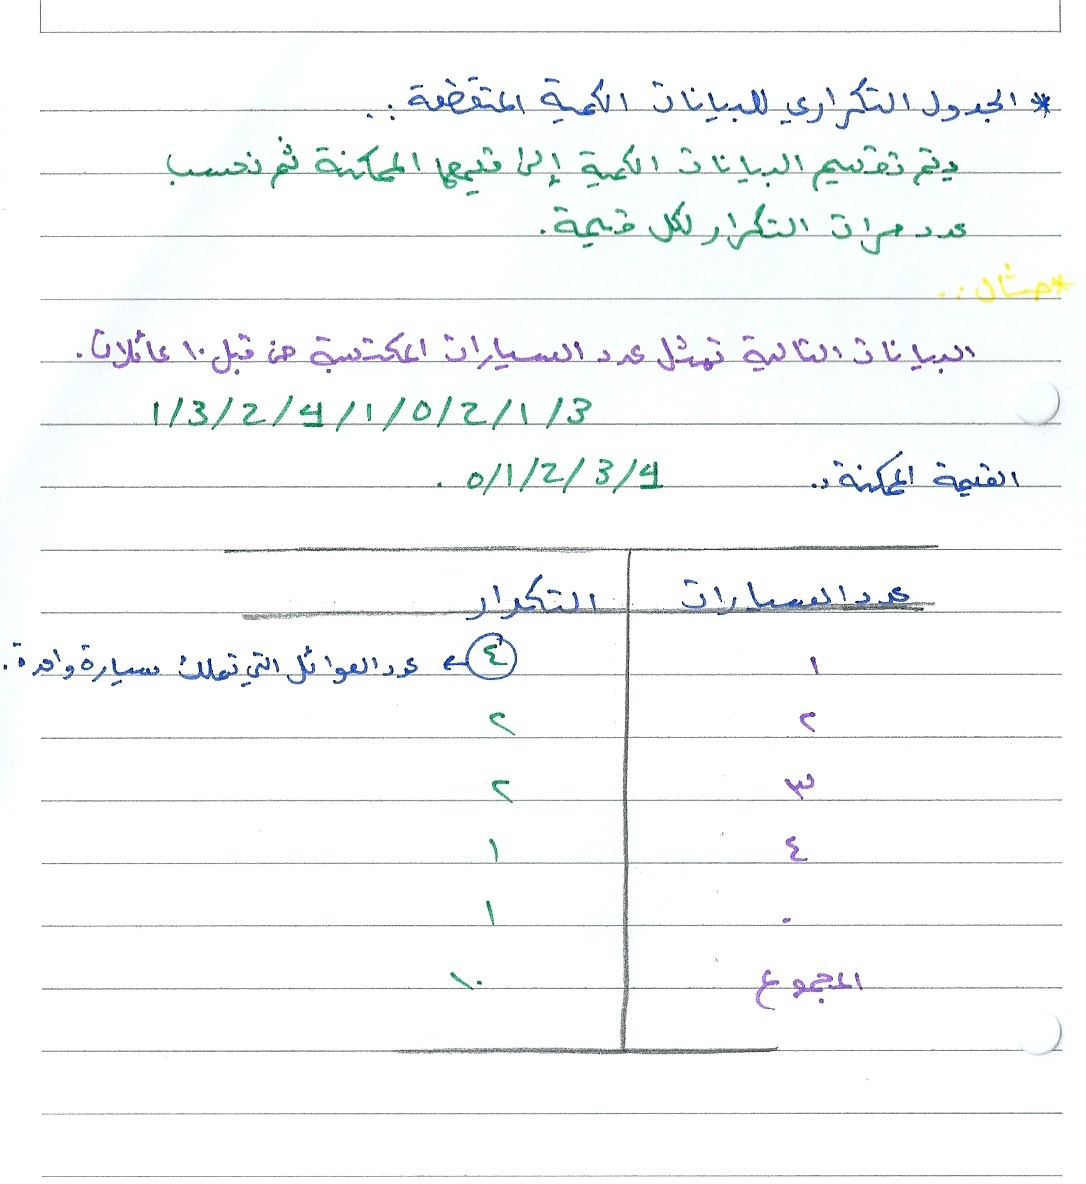 * الجدول التكراري للبيانات الكمية المتقطعة :.
يتم تقسيم البيانات الكمية إلى قيمها الممكنة ثم نحسب
عدد مرات التكرار لكل قيمة.
* مثال :.
البيانات التالية تمثل عدد السيارات المكتسبة من قبل ١٠ عائلات.
1/3/2/4/1/0/2/1/3
القيمة الممكنة :. 0/1/2/3/4 .
عدد السيارات التكرار
١ ٤ ← عدد العوائل التي تملك سيارة واحدة.
٢ ٢
٣ ٢
٤ ١
٠ ١
المجموع ١٠